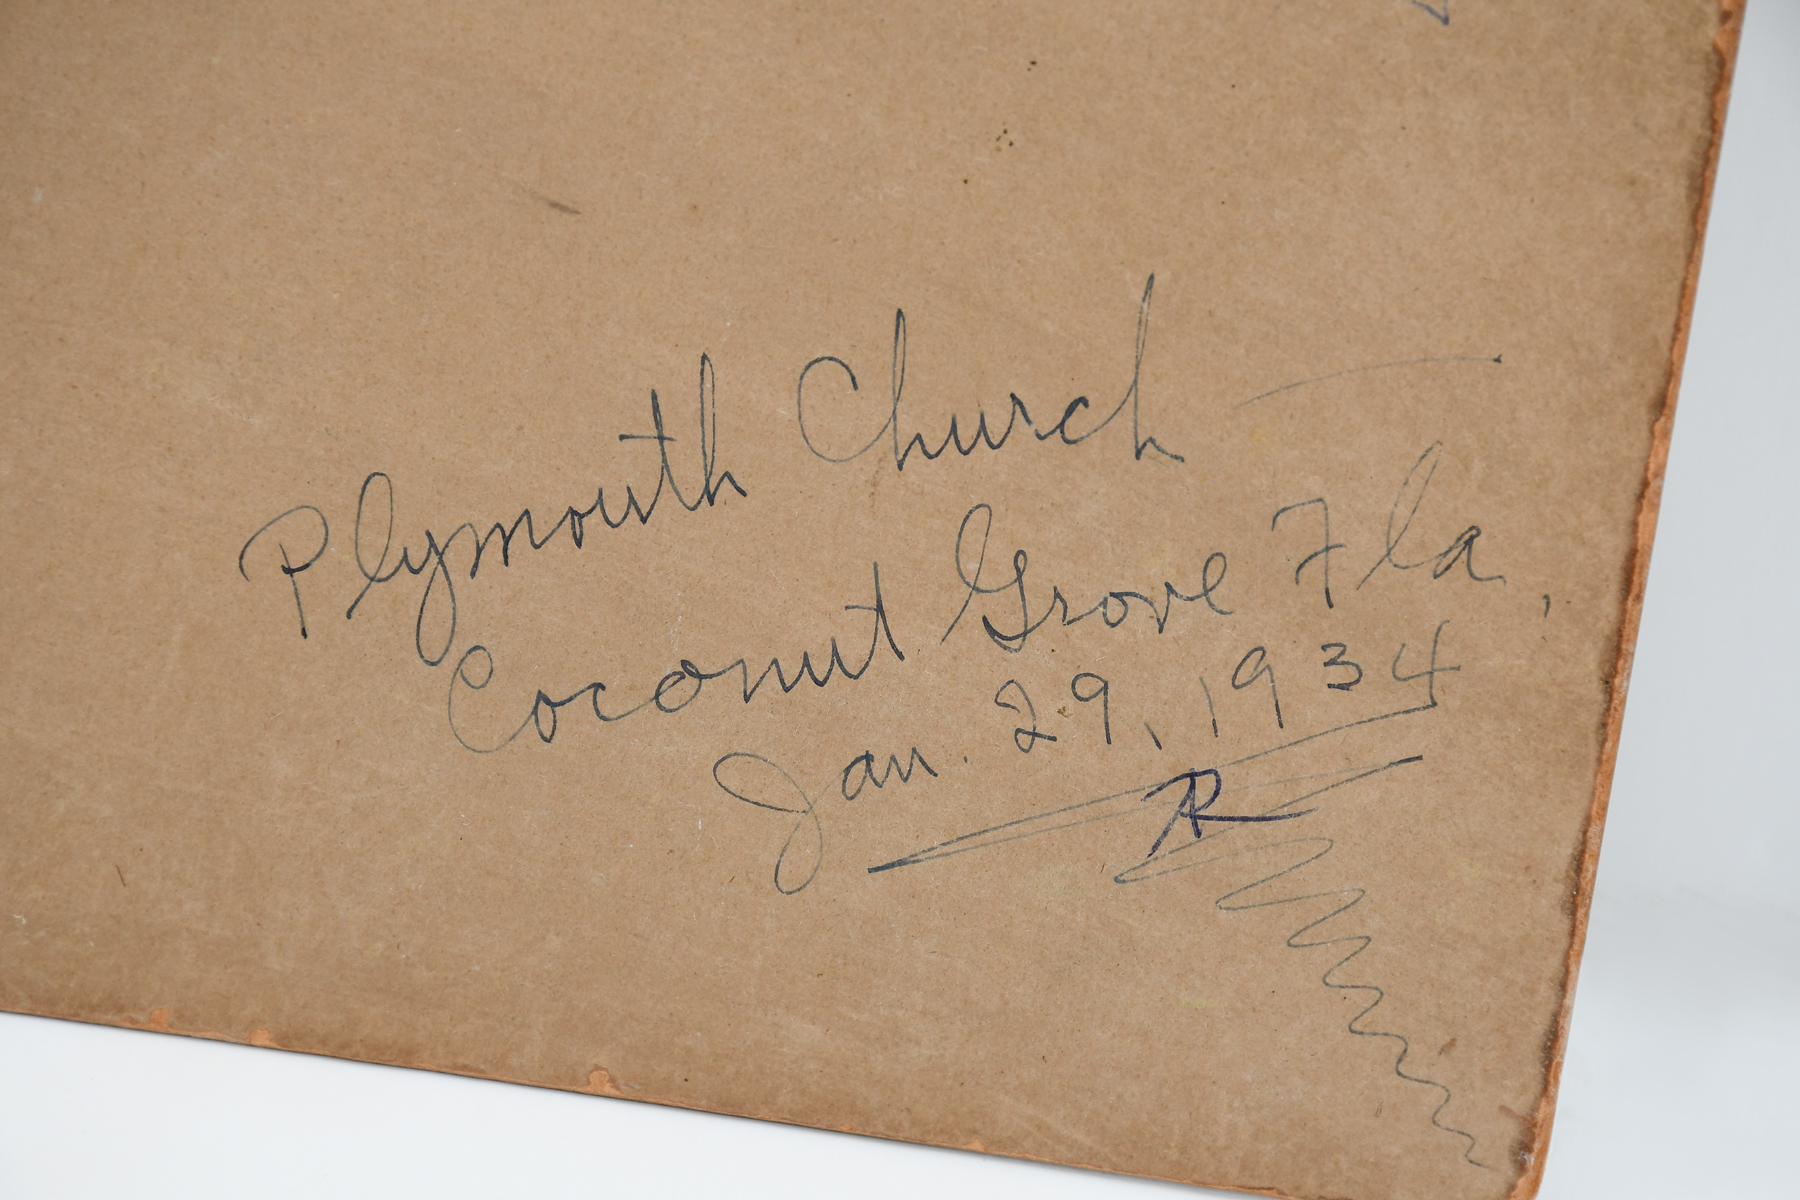 Plymouth Church —
Coconut Grove Fla,
Jan. 29, 1934
R